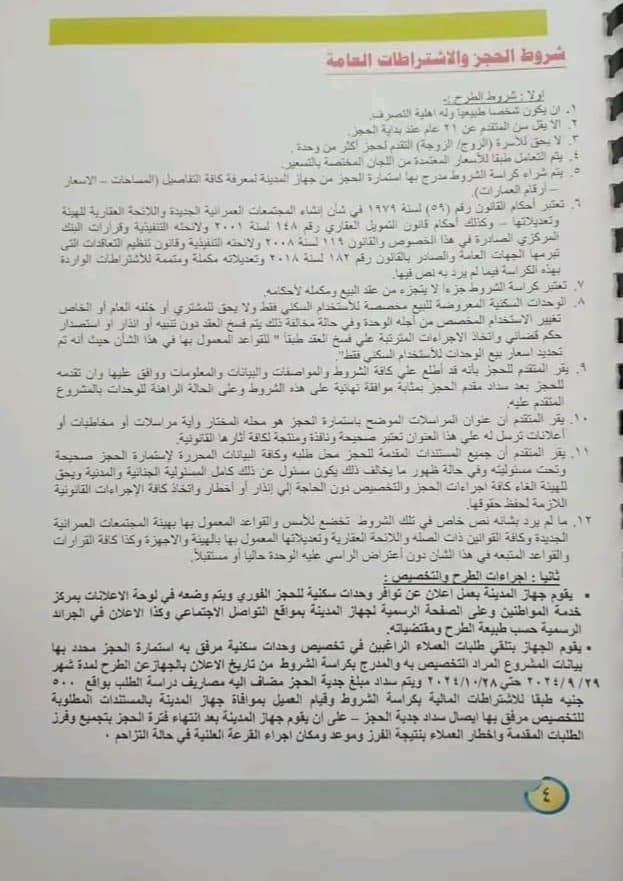 شروط الحجز والاشتراطات العامة
اولا : شروط الطرح :-
١. ان يكون شخصا طبيعيا وله اهلية التصرف.
٢. الا يقل سن المتقدم عن ٢١ عام عند بداية الحجز.
٣. لا يحق للأسرة (الزوج/ الزوجة) التقدم لحجز أكثر من وحدة .
٤. يتم التعامل طبقا للأسعار المعتمدة من اللجان المختصة بالتسعير.
٥. يتم شراء كراسة الشروط مدرج بها استمارة الحجز من جهاز المدينة لمعرفة كافة التفاصيل (المساحات – الاسعار
– أرقام العمارات).
٦. تعتبر أحكام القانون رقم (٥٩) لسنة ١٩٧٩ في شأن إنشاء المجتمعات العمرانية الجديدة واللائحة العقارية للهيئة
وتعديلاتها – وكذلك أحكام قانون التمويل العقاري رقم ١٤٨ لسنة ٢٠٠١ ولائحته التنفيذية وقرارات البنك
المركزي الصادرة في هذا الخصوص والقانون ١١٩ لسنة ٢٠٠٨ ولائحته التنفيذية وقانون تنظيم التعاقدات التى
تبرمها الجهات العامة والصادر بالقانون رقم ١٨٢ لسنة ٢٠١٨ وتعديلاته مكملة ومتممة للأشتراطات الواردة
بهذه الكراسة فيما لم يرد به نص فيها.
٧. تعتبر كراسة الشروط جزءا لا يتجزء من عقد البيع ومكمله لأحكامه.
٨. الوحدات السكنية المعروضة للبيع مخصصة للأستخدام السكني فقط ولا يحق للمشتري أو خلفه العام أو الخاص
تغيير الاستخدام المخصص من أجله الوحدة وفي حالة مخالفة ذلك يتم فسخ العقد دون تنبيه أو انذار او استصدار
حكم قضائي واتخاذ الاجراءات المترتبة علي فسخ العقد طبقا " للقواعد المعمول بها في هذا الشأن حيث أنه تم
تحديد اسعار بيع الوحدات للأستخدام السكني فقط".
٩. يقر المتقدم للحجز بأنه قد أطلع علي كافة الشروط والمواصفات والبيانات والمعلومات ووافق عليها وان تقدمه
للحجز بعد سداد مقدم الحجز بمثابة موافقة نهائية على هذه الشروط وعلى الحالة الراهنة للوحدات بالمشروع
المتقدم عليه.
١٠. يقر المتقدم أن عنوان المراسلات الموضح باستمارة الحجز هو محله المختار وأية مراسلات أو مخاطبات أو
أعلانات ترسل له علي هذا العنوان تعتبر صحيحة ونافذة ومنتجة لكافة أثارها القانونية.
١١. يقر المتقدم أن جميع المستندات المقدمة للحجز محل طلبه وكافة البيانات المحررة لإستمارة الحجز صحيحة
وتحت مسئوليته وفي حالة ظهور ما يخالف ذلك يكون مسئول عن ذلك كامل المسئولية الجنائية والمدنية ويحق
للهيئة الغاء كافة اجراءات الحجز والتخصيص دون الحاجة إلي إنذار أو أخطار واتخاذ كافة الإجراءات القانونية
اللازمة لحفظ حقوقها.
١٢. ما لم يرد بشانه نص خاص في تلك الشروط تخضع للأسس والقواعد المعمول بها بهيئة المجتمعات العمرانية
الجديدة وكافة القوانين ذات الصله واللائحة العقارية وتعديلاتها المعمول بها بالهيئة والاجهزة وكذا كافة القرارات
والقواعد المتبعه في هذا الشان دون أعتراض الراسي عليه الوحدة حاليا أو مستقبلاً.
ثانيا : اجراءات الطرح والتخصيص :
• يقوم جهاز المدينة بعمل اعلان عن توافر وحدات سكنية للحجز الفوري ويتم وضعه في لوحة الاعلانات بمركز
خدمة المواطنين وعلى الصفحة الرسمية لجهاز المدينة بمواقع التواصل الاجتماعي وكذا الاعلان في الجرائد
الرسمية حسب طبيعة الطرح ومقتضياته.
• يقوم الجهاز بتلقي طلبات العملاء الراغبين في تخصيص وحدات سكنية مرفق به استمارة الحجز محدد بها
بيانات المشروع المراد التخصيص به والمدرج بكراسة الشروط من تاريخ الاعلان بالجهازعن الطرح لمدة شهر
٢٠٢٤/٩/٢٩ حتي ٢٠٢٤/١٠/٢٨ ويتم سداد مبلغ جدية الحجز مضاف اليه مصاريف دراسة الطلب بواقع ٥٠٠
جنيه طبقا للاشتراطات المالية بكراسة الشروط وقيام العميل بموافاة جهاز المدينة بالمستندات المطلوبة
للتخصيص مرفق بها ايصال سداد جدية الحجز – على ان يقوم جهاز المدينة بعد انتهاء فترة الحجز بتجميع وفرز
الطلبات المقدمة واخطار العملاء بنتيجة الفرز وموعد ومكان اجراء القرعة العلنية في حالة التزاحم .
٤